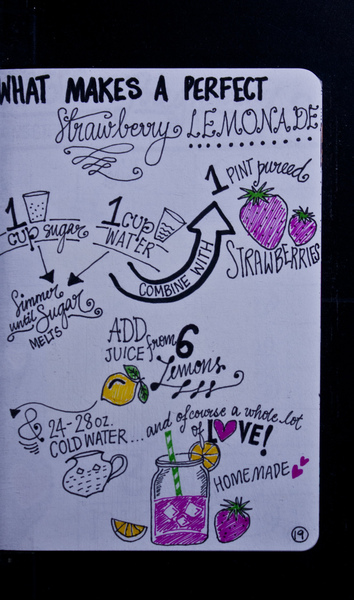 WHAT MAKES A PERFECT
Strawberry LEMONADE
1 cup sugar
1 cup WATER
Simmer
until Sugar
MELTS
COMBINE WITH
1 PINT pureed
STRAWBERRIES
ADD
JUICE from 6
Lemons
& 24-28 oz.
COLD WATER...and ofcourse a whole lot
of LOVE!
HOMEMADE
19